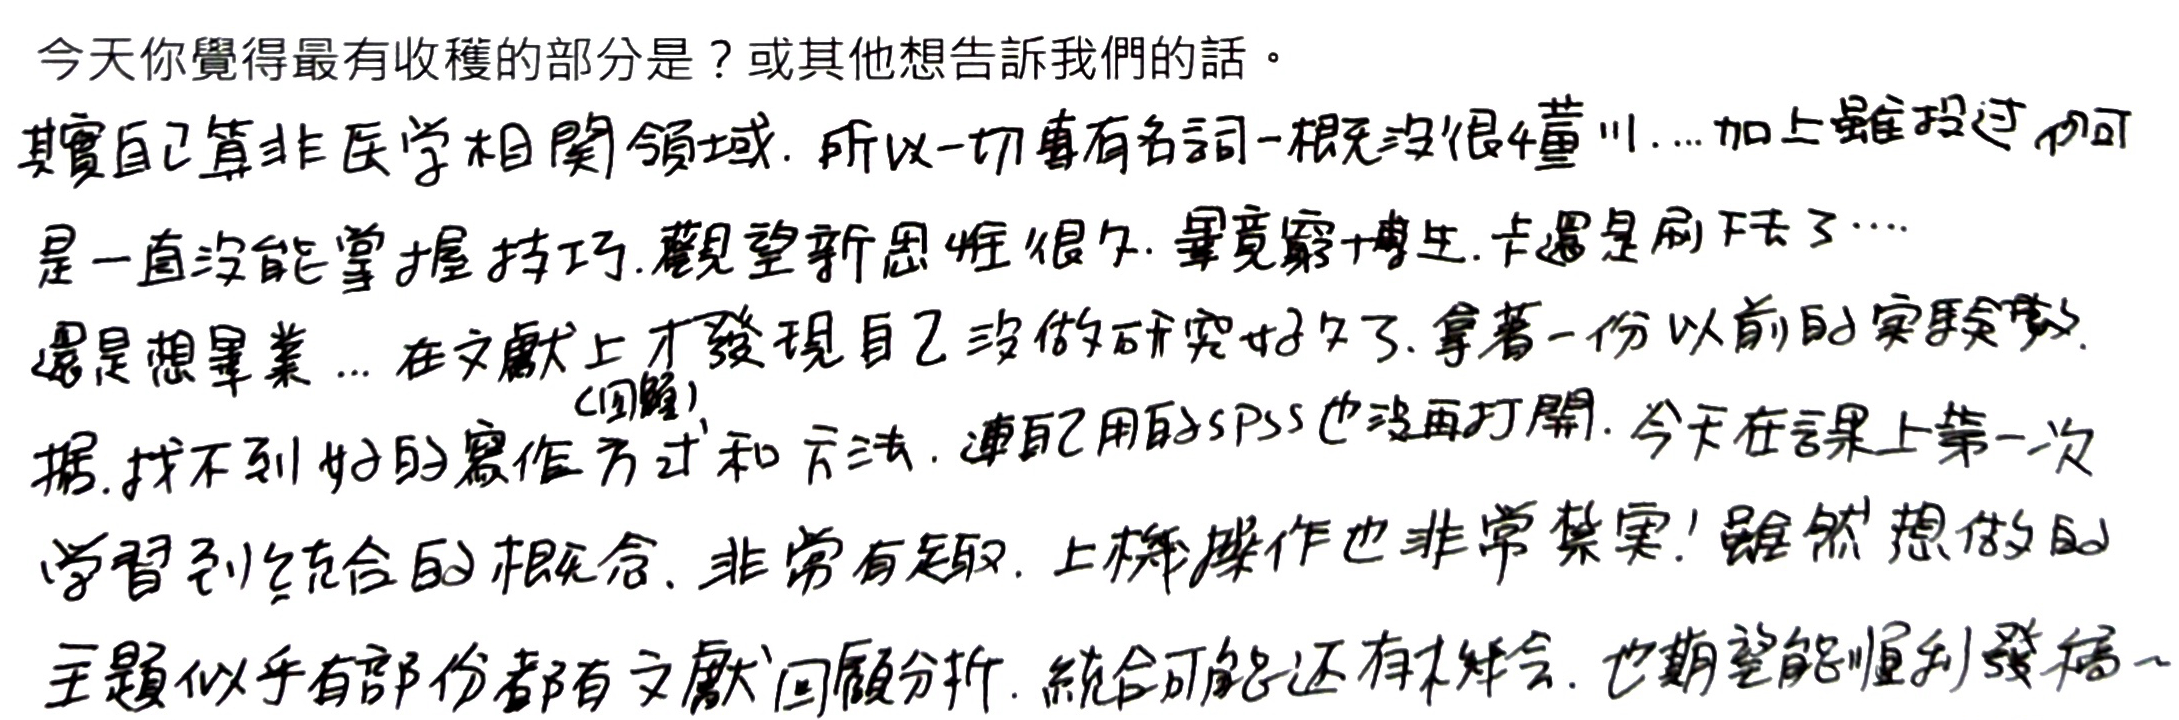 今天你覺得最有收穫的部分是？或其他想告訴我們的話。
其實自己算非医学相関領域. 所以一切專有名詞一概沒很懂川....加上雖投过
是一直沒能掌握技巧.觀望新思惟很久.畢竟窮博生.卡還是刷下去了····
還是想畢業...在文獻上才發現自己沒做研究好久了.拿著一份以前的实験數.
(回顧)
據.找不到好的寫作方式和方法.連自己用的SPSS也沒再打開.今天在課上第一次
学習到統合的概念.非常有趣.上機操作也非常紮実!雖然想做的
主題似乎有部份都有文獻回顧分析.統合可能还有机会.也期望能順利發稿~